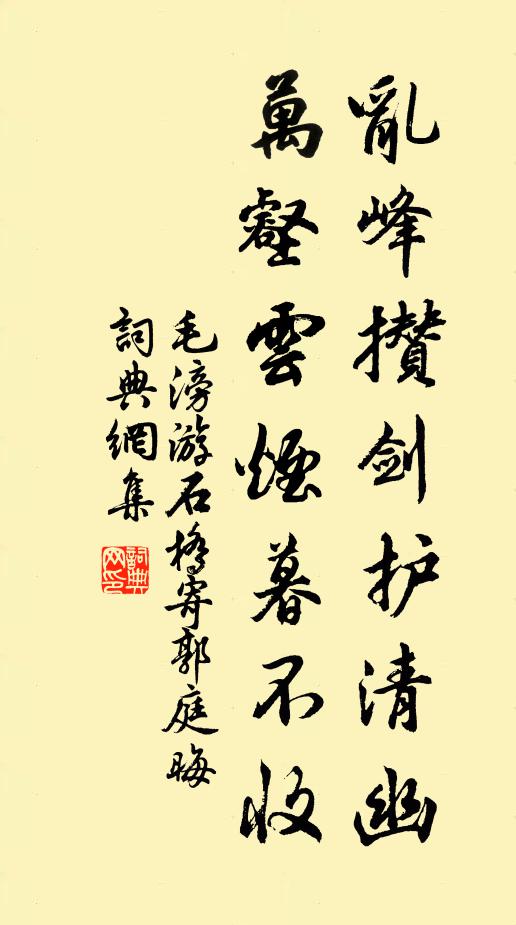 亂峰攢剑护清幽
萬壑雲煙暮不收
毛滂游石橋寄郭庭晦
詞典網集
詞典网印